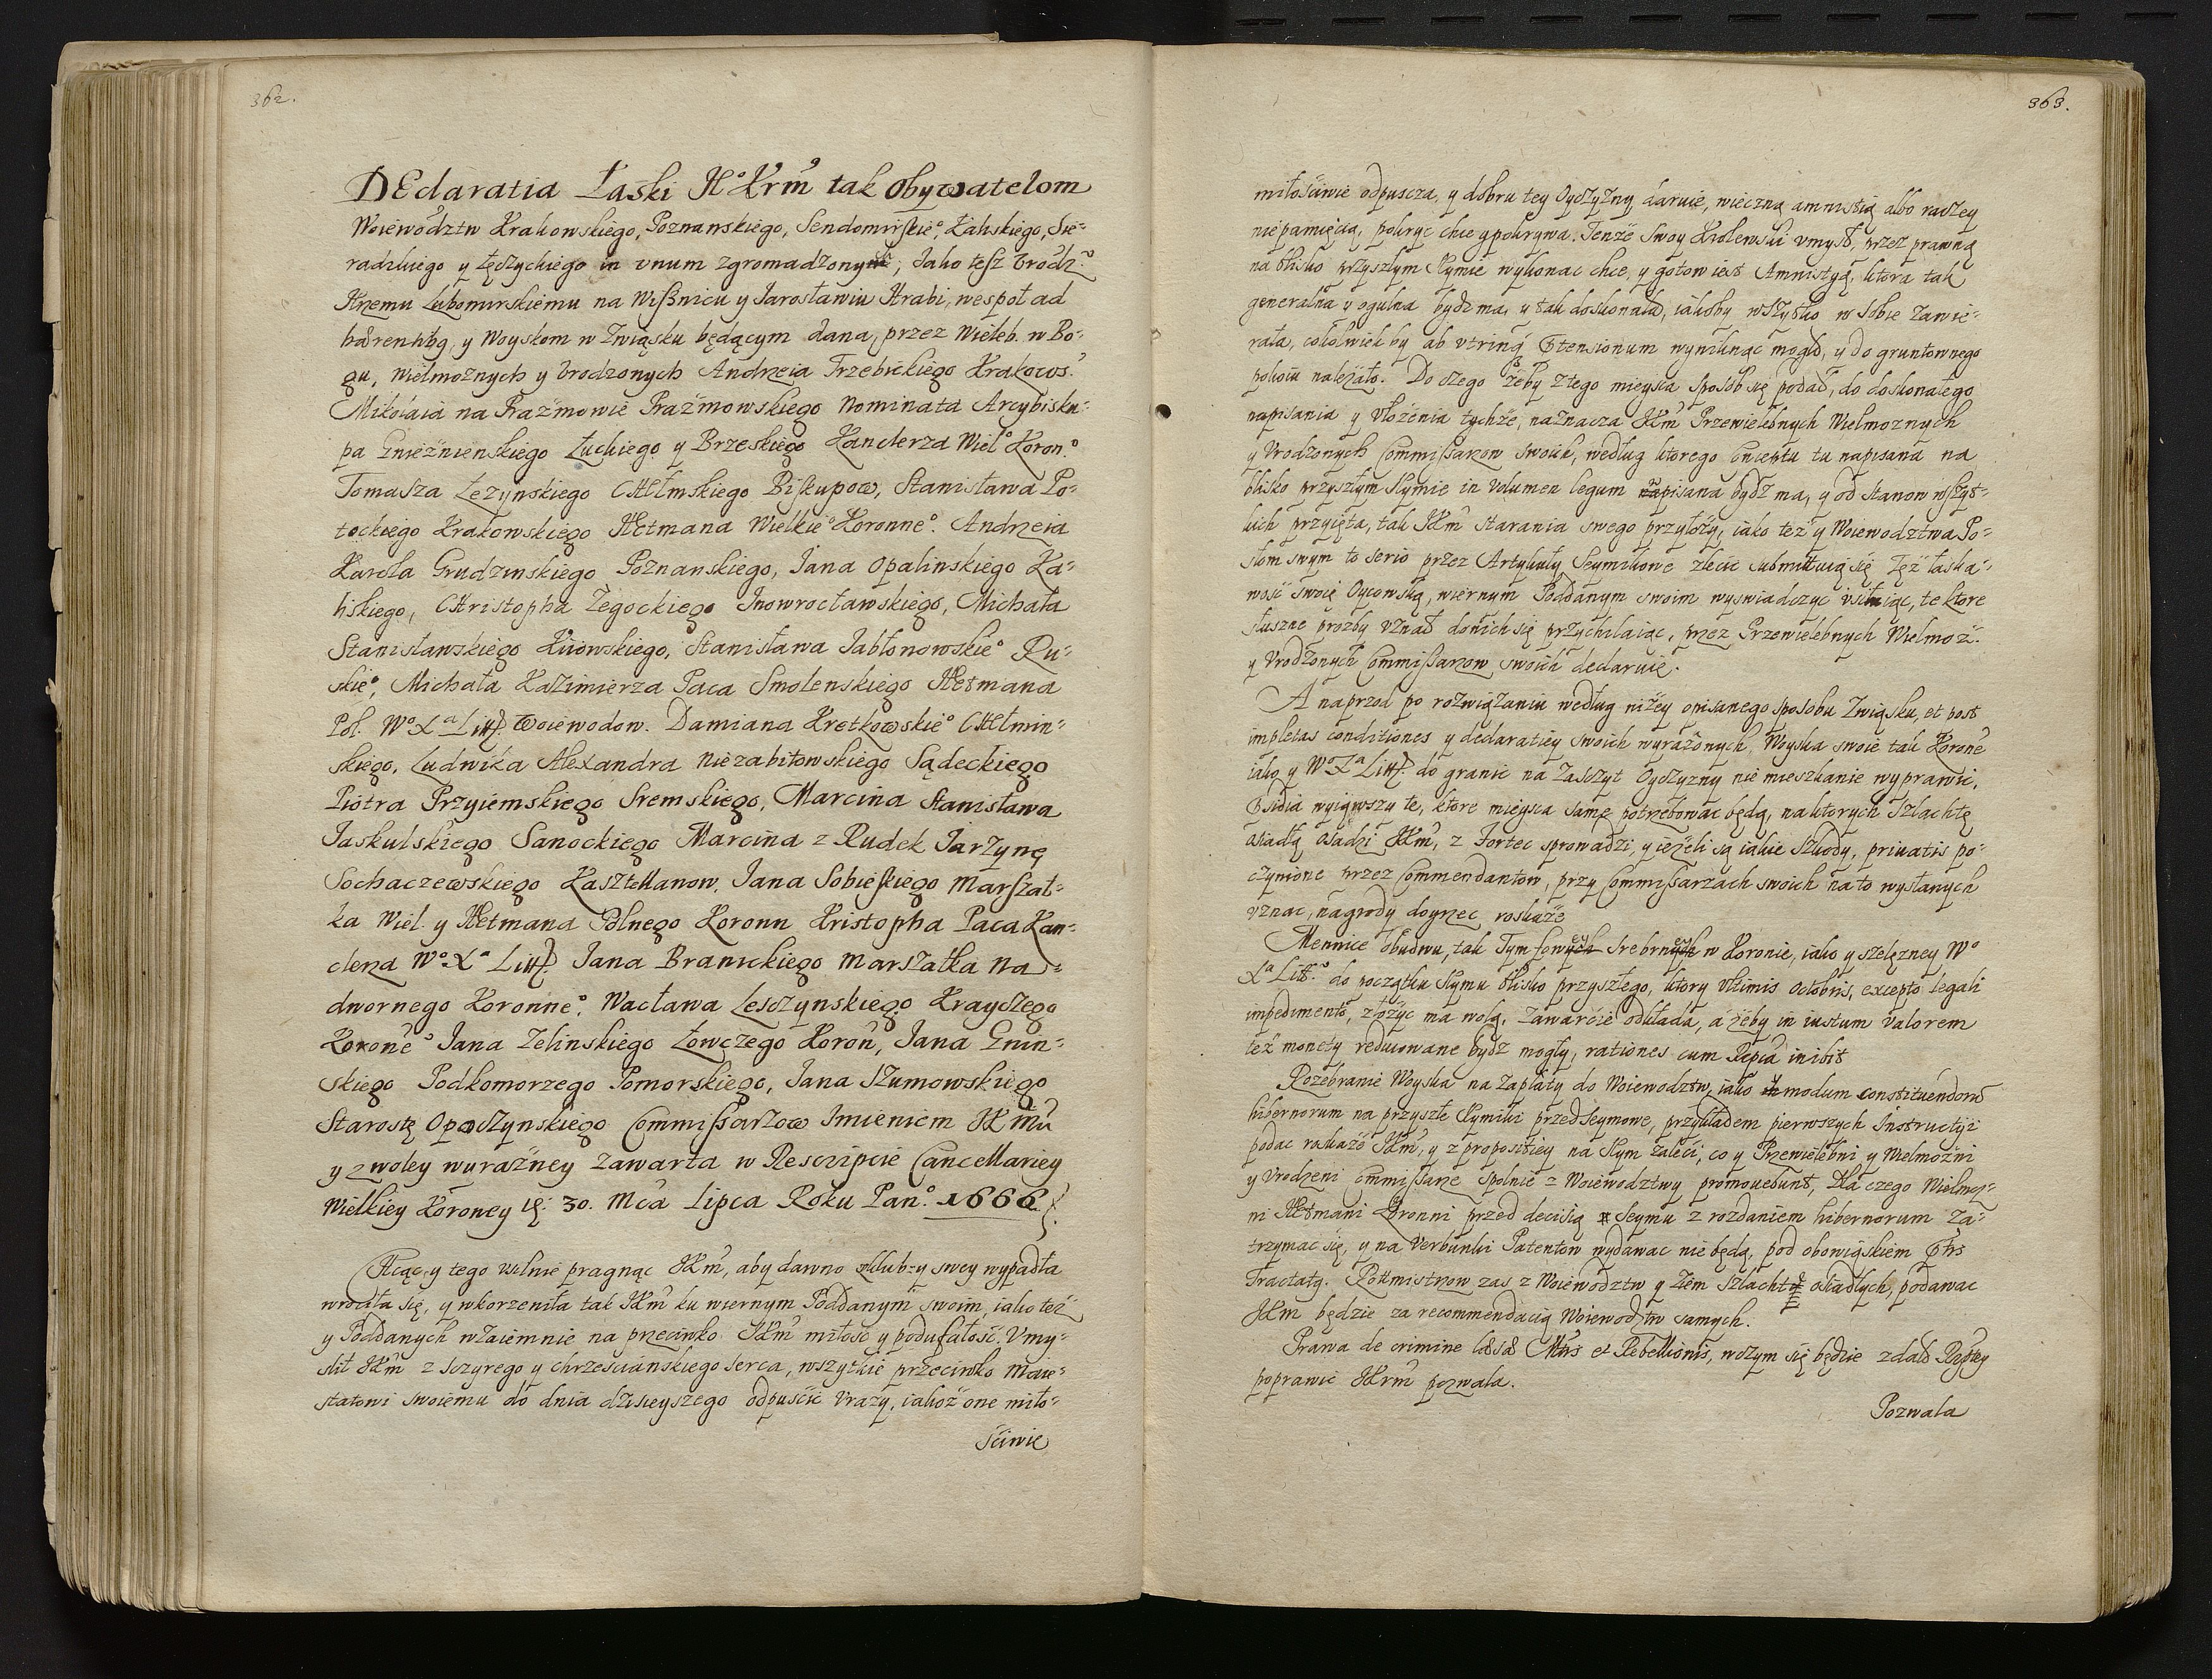 362.
DEclaratia Łaski JKrm tak obywatelom
Woiewodztw Krakowskiego, Poznanskiego, Sendomirskie°, Kaliskiego, Sie=
radzkiego y Łęczyckiego in vnum zgromadzonym, Jako tesz Vrodz°
Jerzemu Lubomirskiemu na Wiśnicu y Jarosławiu Hrabi, wespoł ad
haerentbg, y Woyskom w Związku będącym dana, przez Wieleb. w Bo=
gu, Wielmoznych y Vrodzonych Andrzeia Trzebickiego Krakows.
Mikołaia na Prazmowie Prazmowskiego Nominata Arcybisku=
pa Gnieźnienskiego Łuckiego y Brzeskiego Kanclerza Wiel° Koron.°
Tomasza Lezynskiego CHEłmskiego Biskupow, Stanisława Po=
tockiego Krakowskiego HEtmana Wielkie° Koronne°. Andrzeia
Karola Grudzinskiego Poznanskiego, Jana Opalinskiego Ka=
liskiego, CHristopha Zegockiego Jnowrocławskiego, Michała
Stanisławskiego Kiiowskiego, Stanisława Jabłonowskie° Ru=
skie°, Michała Kazimierza Paca Smolenskiego HEtmana
Pol. W°Xa Litt. Woiewodow. Damiana Kretkowskie° CHEłmin=
skiego, Ludwika Alexandra Niezabitowskiego Sądeckiego
Piotra Przyiemskiego Sremskiego, Marcina Stanisława
Jaskulskiego Sanockiego Marcina z Rudek Jarzynę
Sochaczewskiego Kasztellanow, Jana Sobieskiego Marszał=
ka Wiel. y HEtmana Polnego Koronn Kristopha Paca Kan=
clerza W°Xa Litt. Jana Branickiego Marszałka Na=
dwornego Koronne°, Wacława Lesczynskiego Krayczego
Korone° Jana Zelinskiego Łowczego Koron, Jana Gnin=
skiego Podkomorzego Pomorskiego, Jana Szumowskiego
Starostę Opoczynskiego Commissarzow Jmieniem JKMci
y z woley wyrażney zawarta w Rescripcie Cancellariey
Wielkiey Koroney d: 30. Mca Lipca Roku Pan°. 1666.
CHcąc, y tego vsilnie pragnąc JKm, aby dawno z klubzy swey wypadła
wrociła się, y wkorzeniła tak JKm ku wiernym Poddanym swoim, iako też
y Poddanych wzaiemnie na przeciwko JKm miłosc y podufałość. Vmy=
slił JKm z sczyrego y chrzescianskiego serca, wszytkie przeciwko Maie=
statowi swoiemu do dnia dzisieyszego odpuścić Vrazy, iakoż one miło=
ściwie
363.
miłościwie odpuscza, y dobru tey Oyczyzny daruie, wieczną amnistią albo raczey
niepamięcią, pokryc chce y pokrywa. Tenże swoy Krolewski vmysł, przez prawną
na blisko przyszłym Seymie wykonac chce, y gotow iest Amnistyą, ktora tak
generalna y ogulna bydz ma, y tak doskonała, iakoby wszytko w sobie zawie=
rała, cokolwiek by ab vtrinq Ptensionum wyniknąc mogło, y do gruntownego
pokoiu należało. Do czego żeby z tego mieysca sposob się podał, do doskonałego
napisania y vłożenia tychże, naznacza JKm Przewielebnych Wielmoznych
y Vrodzonych Commissarzow swoich, według ktorego Conceptu tu napisana na
blisko przyszłym Seymie in Volumen legum wpisana bydź ma, y od Stanow wszyt=
kich przyięta, tak JKm starania swego przyłoży, iako też y Woiewodztwa Po=
słom swym to serio przez Artykuły Seymikowe zlecić submittuią się Też łaska=
wość swoię Oycowską, wiernym Poddanym swoim wyswiadczyc vsiłuiąc, te ktore
słuszne prozby vznał do nich się przychilaiąc, przez Przewielebnych Wielmoż.
y Vrodzonych Commissarzow swoich declaruie.
A naprzod po rozwiązaniu według niżey opisanego sposobu Związku, et post
impletas conditiones y declaratiey swoich wyrażonych, Woyska swoie tak Korone
iako y W°Xa Litt. do granic na zasczyt Oyczyzny nie mieszkanie wyprawic.
Psidia wyiąwszy te, ktore mieysca same potrzebowac będą, na ktorych Szlachtę
osiadłą osadzi JKm, z Fortec sprowadzi, y iezeli są iakie szkody, priuatis po=
czynione przez Commendantow, przy Commissarzach swoich na to wysłanych
vznac, nagrody doyrzec roskaże
Mennice obudwu, tak Tymfowych srebrnych w Koronie, iako y szelężney W°
Xa Litt.° do początku Seymu blisko przyszłego, ktory vltimis Octobris, excepto legali
impedimento, złożyc ma wolą, zawarcie odkłada, a żeby in iustum valorem
też monety reducowane bydz mogły, rationes cum Repca inibit
Rozebranie Woyska na Zapłaty do Woiewodztw, iako y modum constituendorum
hibernorum na przyszłe Seymiki przedSeymowe, przykładem pierwszych Jnstructiji
podac roskaże JKm, y z propositiey na Seym zaleci, co y Przewielebni y Wielmożni
y Vrodzeni Commissarze społnie z Woiewodztwy promouebunt, Dla czego Wielmoż=
ni HEtmani Koronni przed decisią Seymu z rozdaniem hibernorum za=
trzymac się, y na Verbunki Patentow wydawac nie będą, pod obowiąskiem Pntis
Tractatg. Rotmistrzow zas z Woiewodztw y Ziem Szlachtę osiadłych, podawac
JKm będzie za recommendacią Woiewodztw samych.
Prawa de crimine laesae Mttis et Rebellionis, w czym się będzie zdało Rzptey
poprawic JKrm pozwala.
Pozwala